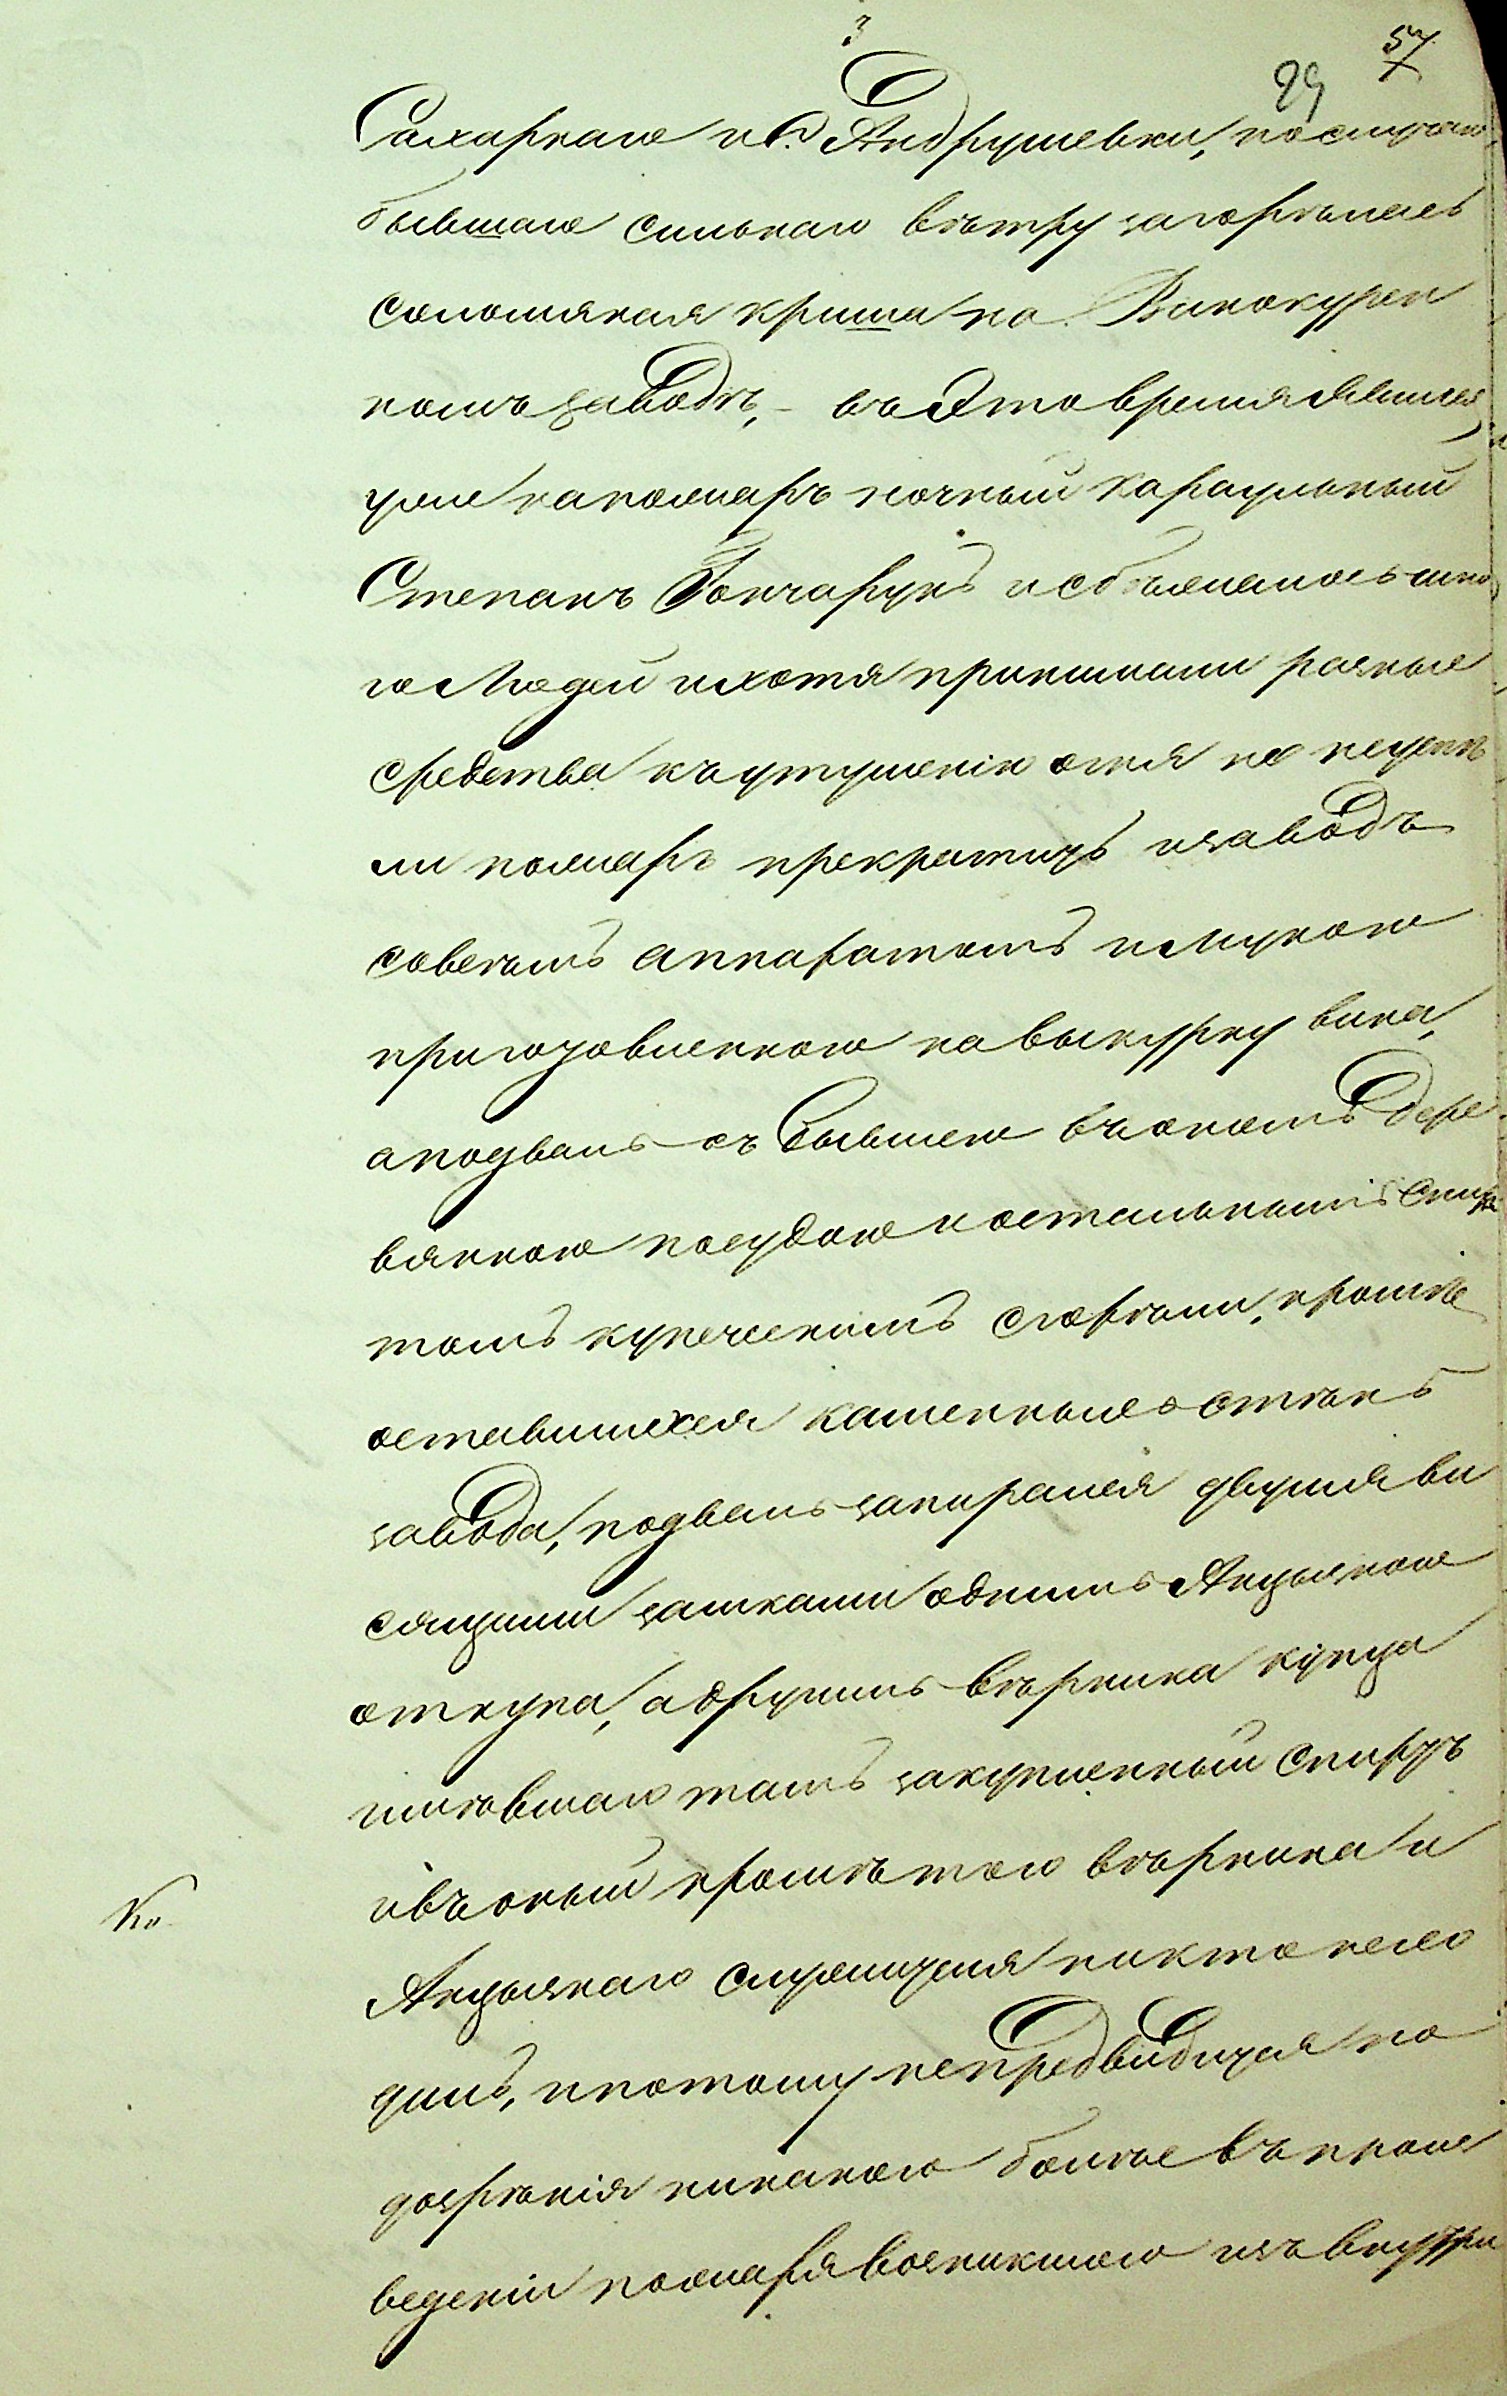 57
29
Сахарнаго и с. Андрушевки, по случаю
бывшаго сильнаго вѣтру загорѣлась
соломяная криша на Винокурен
номъ заводѣ, – въ это время явился
уже на пожаръ ночный караульный
Степанъ Гончарукъ и сбѣжалось мно
го людей и хотя принимали разные
средства къ утушенію огня но неуспѣ
ли пожаръ прекратить и заводъ
совсемъ аппаратомъ и мукою
приготовленною на выкурку вина,
а подвалъ съ бывшею въ ономъ дере
вянною посудою и остальнымъ спир
томъ купеческимъ сгорѣли, кромѣ
оставшихся каменныхъ стѣнъ
завода, подвалъ запирался двумя ви
сящими замками однимъ Акцызного
откупа, а другимъ вѣрника купца
имѣвшаго тамъ закупленный спиртъ
и въ оный кромѣ того вѣрника и
Акцызнаго служителя никто нехо
дилъ, и потому непредвидится по
дозрѣнія никакого болѣе въ произ
веденіи пожара возникшаго изъ внутри